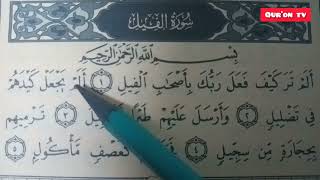 Qur'on TV
سُورَةُ الْفِيلِ
بِسْمِ اللَّهِ الرَّحْمَٰنِ الرَّحِيمِ
أَلَمْ تَرَ كَيْفَ فَعَلَ رَبُّكَ بِأَصْحَٰبِ الْفِيلِ ١ أَلَمْ يَجْعَلْ كَيْدَهُمْ
فِي تَضْلِيلٍ ٢ وَأَرْسَلَ عَلَيْهِمْ ٣ تَرْمِيهِم
بِحِجَارَةٍ مِّن سِجِّيلٍ ٤ كَعَصْفٍ مَّأْكُولٍ ٥